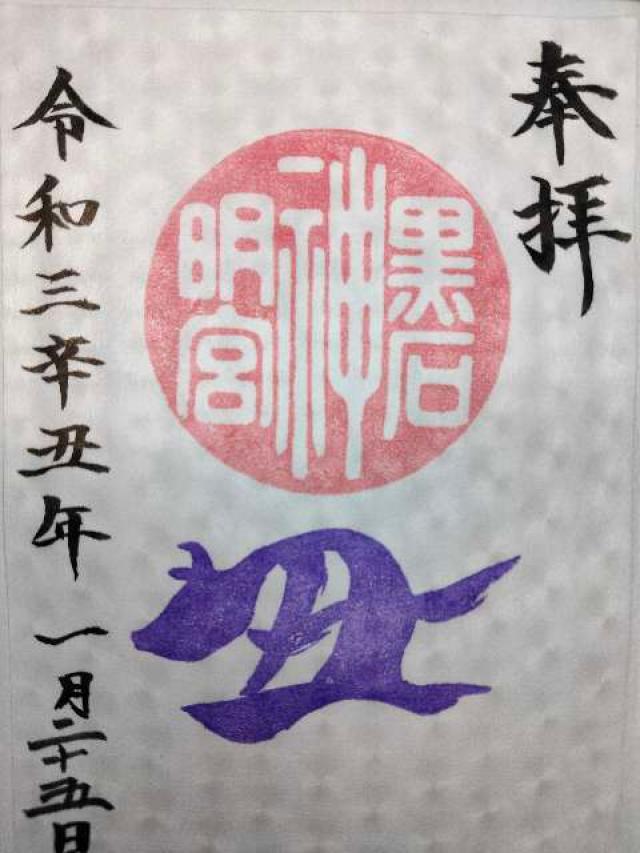 奉拝
黒石
神
明宮
丑
令和三辛丑年 一月二十五日